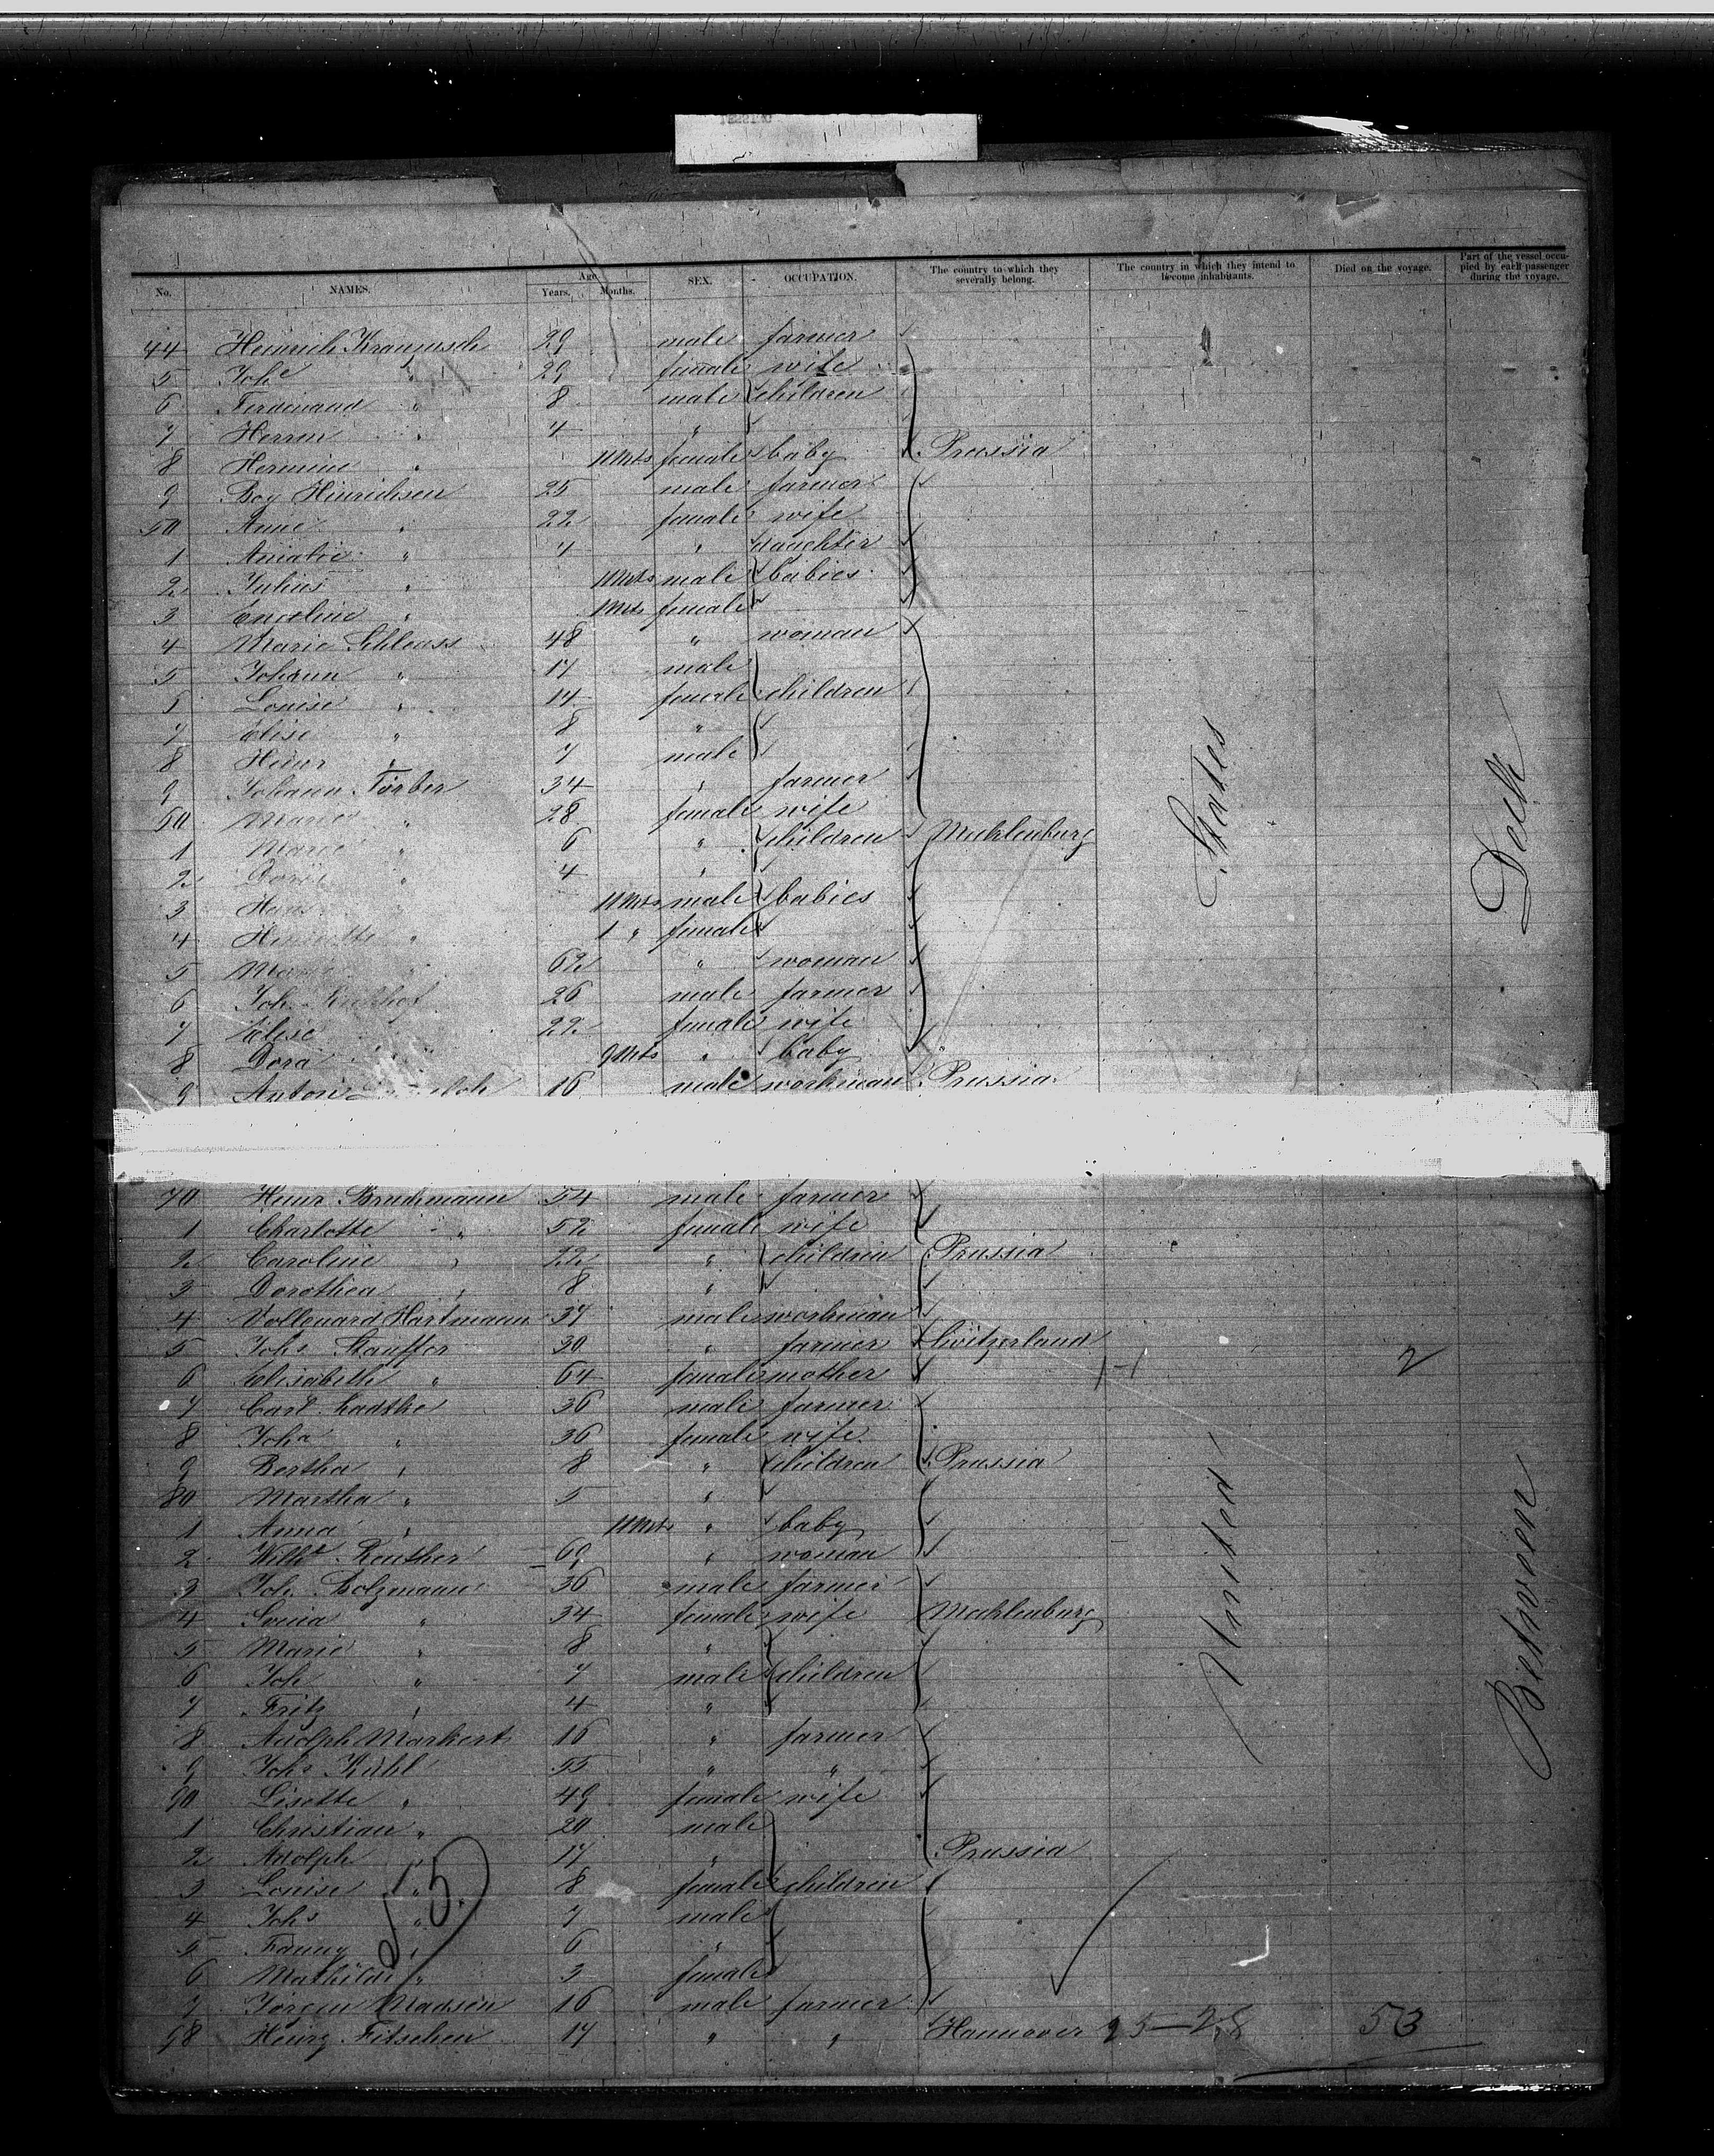 No. NAMES. Age Years. Months. SEX. OCCUPATION. The country to which they severally belong. The country in which they intend to become inhabitants. Died on the voyage. Part of the vessel occupied by each passenger during the voyage.
44 Heinrich 29 male farmer
5 Joh " 29 female wife
6 Ferdinand " 8 male children
7 Herrm " 4 "
8 Hermine " 11 Mts female baby Prussia
9 Boy Hinrichsen 25 male farmer
50 Anne " 22 female wife
1 Amalie " 4 " daughter
2 Julius " 11 Mts male babies
3 " 1 Mts female
4 Marie 48 " woman
5 Johann " 17 male
5 Louise " 14 female children
7 Elise " 8 "
8 Heinr " 7 male
9 Johann Färber 34 " farmer
60 Marie " 28 female wife
1 Marie " 6 " children Mecklenburg
2 " 4 "
3 Hans 11 Mts male babies
4 Henriette " 1 " female
5 62 " woman
6 Joh. 26 male farmer
7 Elise 22 female wife
8 Dora 9 Mts " baby "
9 Anton 16 male workman Prussia
70 Heinr Brackmann 54 male farmer
1 Charlotte " 52 female wife
2 Caroline " 22 " children Prussia
3 Dorothea " 8 "
4 Hartmann 37 male workman
5 Johs Stauffer 30 " farmer Switzerland
6 Elisabeth " 64 female mother 2
7 Carl 36 male farmer
8 Joha " 36 female wife
9 Bertha " 8 " children Prussia
80 Martha " 5 "
1 Anna " 11 Mts " baby
2 Reuther 69 " woman
3 Joh. Bolzmann 36 male farmer
4 " 34 female wife Mecklenburg
5 Marie " 8 "
6 Joh " 7 male children
7 Fritz " 4 "
8 Adolph Markert 16 " farmer
9 Johs Kühl 55 " "
90 Lisette " 49 female wife
1 Christian " 20 male
2 Adolph " 17 " Prussia
3 Louise " 8 female children
4 Johs " 7 male
5 Fanny " 6 "
6 Mathilde " 3 female
7 Jörgen Madsen 16 male farmer
98 Heinr Fitschen 17 " " Hannover 25-28 53
United States
Between Deck